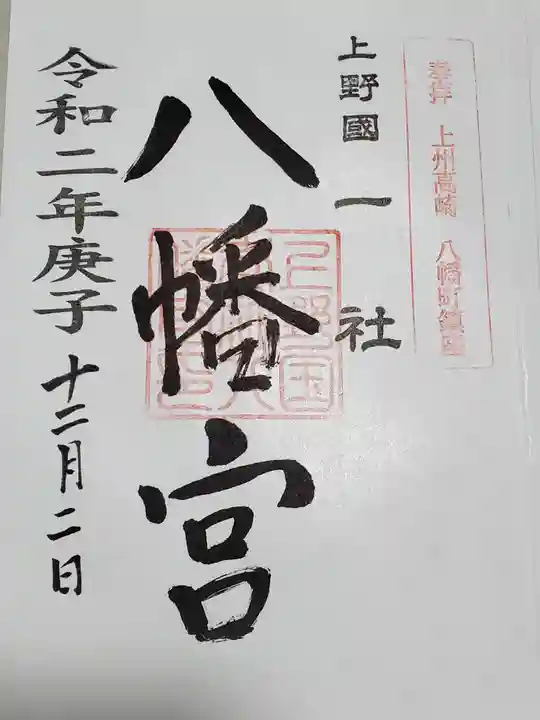 奉拝 上州高崎 八幡町鎮座
上野國一社
八幡宮
令和二年庚子十二月二日